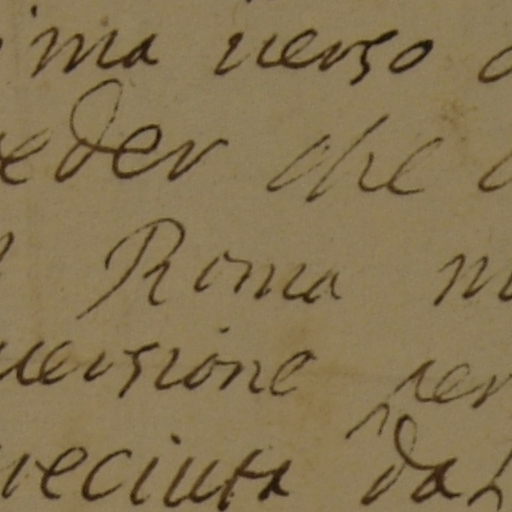 ima verso
veder che
Roma
versione per
veciuta dal